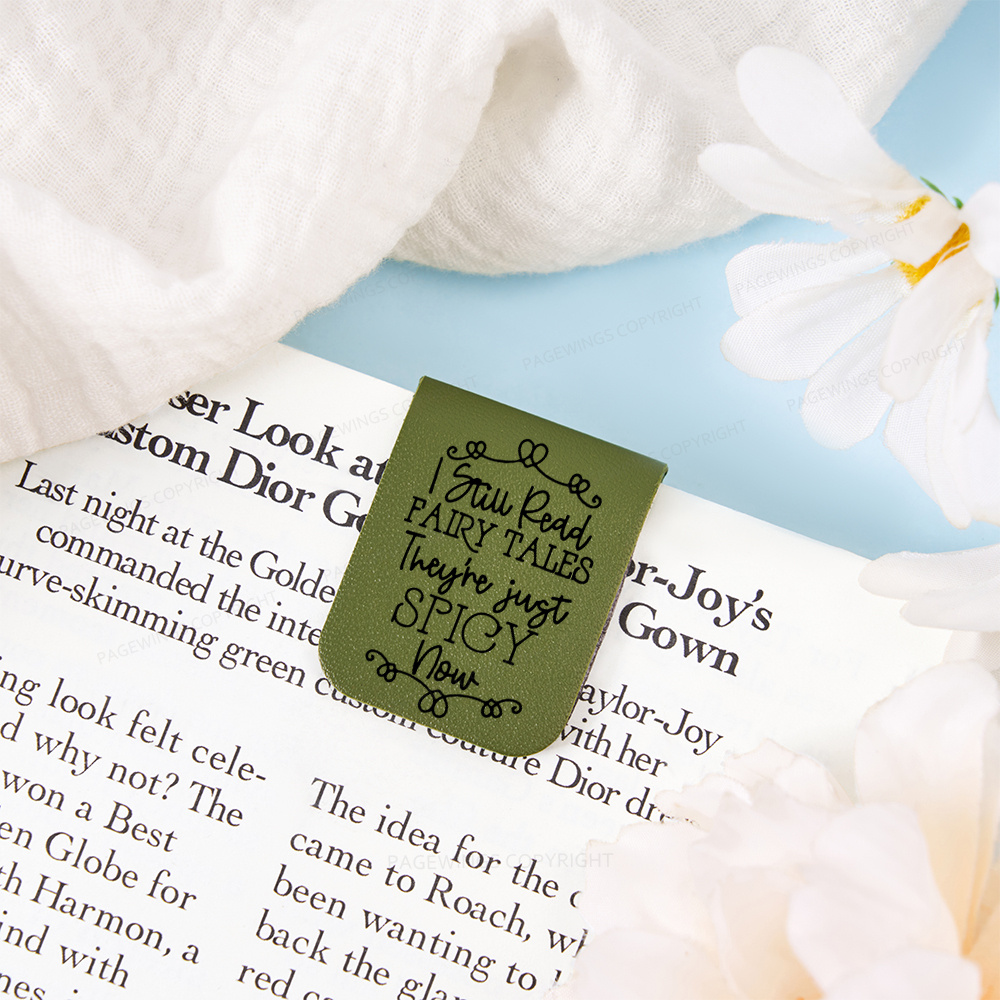 ser Look at
stom Dior Go
or-Joy's
Gown
Last night at the Golde
commanded the inte
urve-skimming green custom couture Dior dr
aylor-Joy
with her
I Still Read
FAIRY TALES
They're just
SPICY
Now
ng look felt cele-
d why not? The
won a Best
en Globe for
th Harmon, a
ind with
The idea for the
came to Roach, wh
been wanting to
back the glar
red co
PAGEWINGS COPYRIGHT